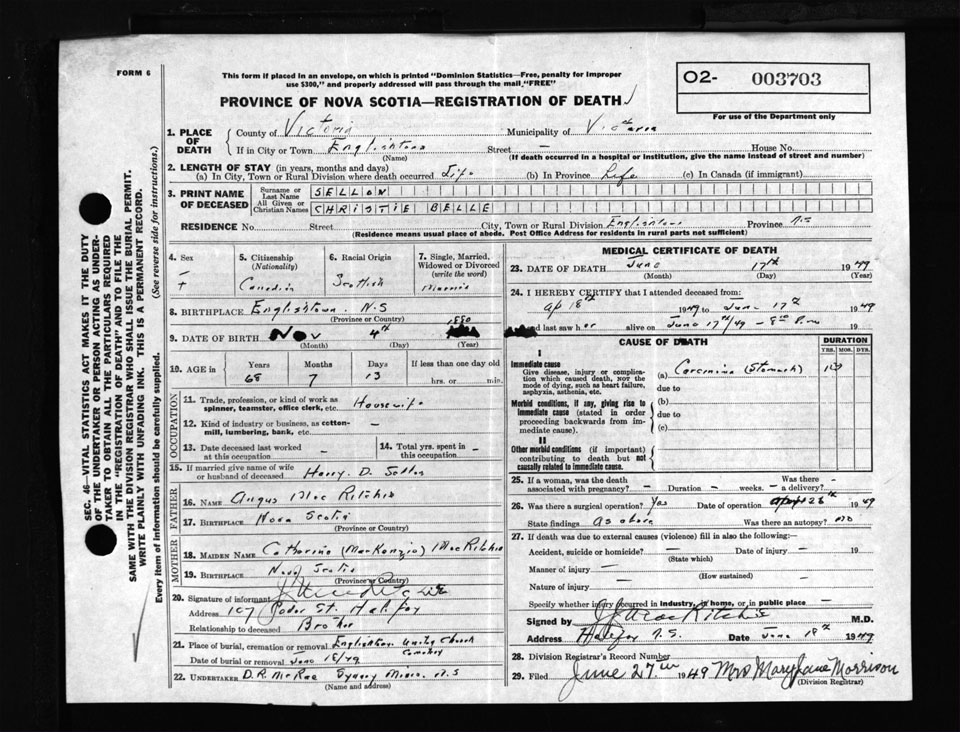 FORM 6
This form if placed in an envelope, on which is printed "Dominion Statistics—Free, penalty for improper
use $300," and properly addressed will pass through the mail "FREE"
O2- 003703
For use of the Department only
PROVINCE OF NOVA SCOTIA—REGISTRATION OF DEATH
1. PLACE OF DEATH County of Victoria Municipality of Victoria
If in City or Town Englishtown Street — House No.
(Name) (If death occurred in a hospital or institution, give the name instead of street and number)
2. LENGTH OF STAY (in years, months and days)
(a) In City, Town or Rural Division where death occurred Life (b) In Province Life (c) In Canada (if immigrant)
3. PRINT NAME OF DECEASED Surname or Last Name SELLON
All Given or Christian Names CHRISTIE BELLE
RESIDENCE No. Street City, Town or Rural Division Englishtown Province NS
(Residence means usual place of abode. Post Office Address for residents in rural parts not sufficient)
4. Sex 5. Citizenship (Nationality) 6. Racial Origin 7. Single, Married, Widowed or Divorced (write the word)
F Canadian Scottish Married
8. BIRTHPLACE Englishtown N.S
(Province or Country)
9. DATE OF BIRTH Nov 4th 1880
(Month) (Day) (Year)
10. AGE in Years Months Days If less than one day old
68 7 13 hrs. or min.
OCCUPATION
11. Trade, profession, or kind of work as spinner, teamster, office clerk, etc. Housewife
12. Kind of industry or business, as cotton-mill, lumbering, bank, etc. —
13. Date deceased last worked at this occupation — 14. Total yrs. spent in this occupation —
15. If married give name of wife or husband of deceased Harry D. Sellon
FATHER
16. NAME Angus MacRitchie
17. BIRTHPLACE Nova Scotia
(Province or Country)
MOTHER
18. MAIDEN NAME Catherine (MacKenzie) MacRitchie
19. BIRTHPLACE Nova Scotia
(Province or Country)
20. Signature of informant MacRitchie
Address 107 St. Halifax
Relationship to deceased Brother
21. Place of burial, cremation or removal Englishtown United Church Cemetery
Date of burial or removal June 18/49
22. UNDERTAKER D.R. McRae Sydney Mines N.S
(Name and address)
MEDICAL CERTIFICATE OF DEATH
23. DATE OF DEATH June 17th 1949
(Month) (Day) (Year)
24. I HEREBY CERTIFY that I attended deceased from:
Ap 18th 1949 to June 17th 1949
and last saw her alive on June 17th/49 – 8 P.m 19
CAUSE OF DEATH DURATION
YRS. MOS. DYS.
I
Immediate cause
Give disease, injury or complication which caused death, not the mode of dying, such as heart failure, asphyxia, asthenia, etc.
(a) Carcinoma (Stomach)
due to
Morbid conditions, if any, giving rise to immediate cause (stated in order proceeding backwards from immediate cause).
(b)
due to
(c)
II
Other morbid conditions (if important) contributing to death but not causally related to immediate cause.
25. If a woman, was the death associated with pregnancy? - Duration - weeks. - Was there a delivery? -
26. Was there a surgical operation? Yes Date of operation April 28th 1949
State findings as above Was there an autopsy? no
27. If death was due to external causes (violence) fill in also the following:—
Accident, suicide or homicide? — Date of injury — 19
(State which)
Manner of injury —
(How sustained)
Nature of injury —
Specify whether injury occurred in industry, in home, or in public place —
Signed by MacRitchie M.D.
Address Halifax N.S. Date June 18th 1949
28. Division Registrar's Record Number
29. Filed June 27th 1949 Mrs Mary Jane Morrison
(Division Registrar)
SEC. 46—VITAL STATISTICS ACT MAKES IT THE DUTY
OF THE UNDERTAKER OR PERSON ACTING AS UNDER-
TAKER TO OBTAIN ALL THE PARTICULARS REQUIRED
IN THE "REGISTRATION OF DEATH" AND TO FILE THE
SAME WITH THE DIVISION REGISTRAR WHO SHALL ISSUE THE BURIAL PERMIT.
WRITE PLAINLY WITH UNFADING INK. THIS IS A PERMANENT RECORD.
Every item of information should be carefully supplied. (See reverse side for instructions.)